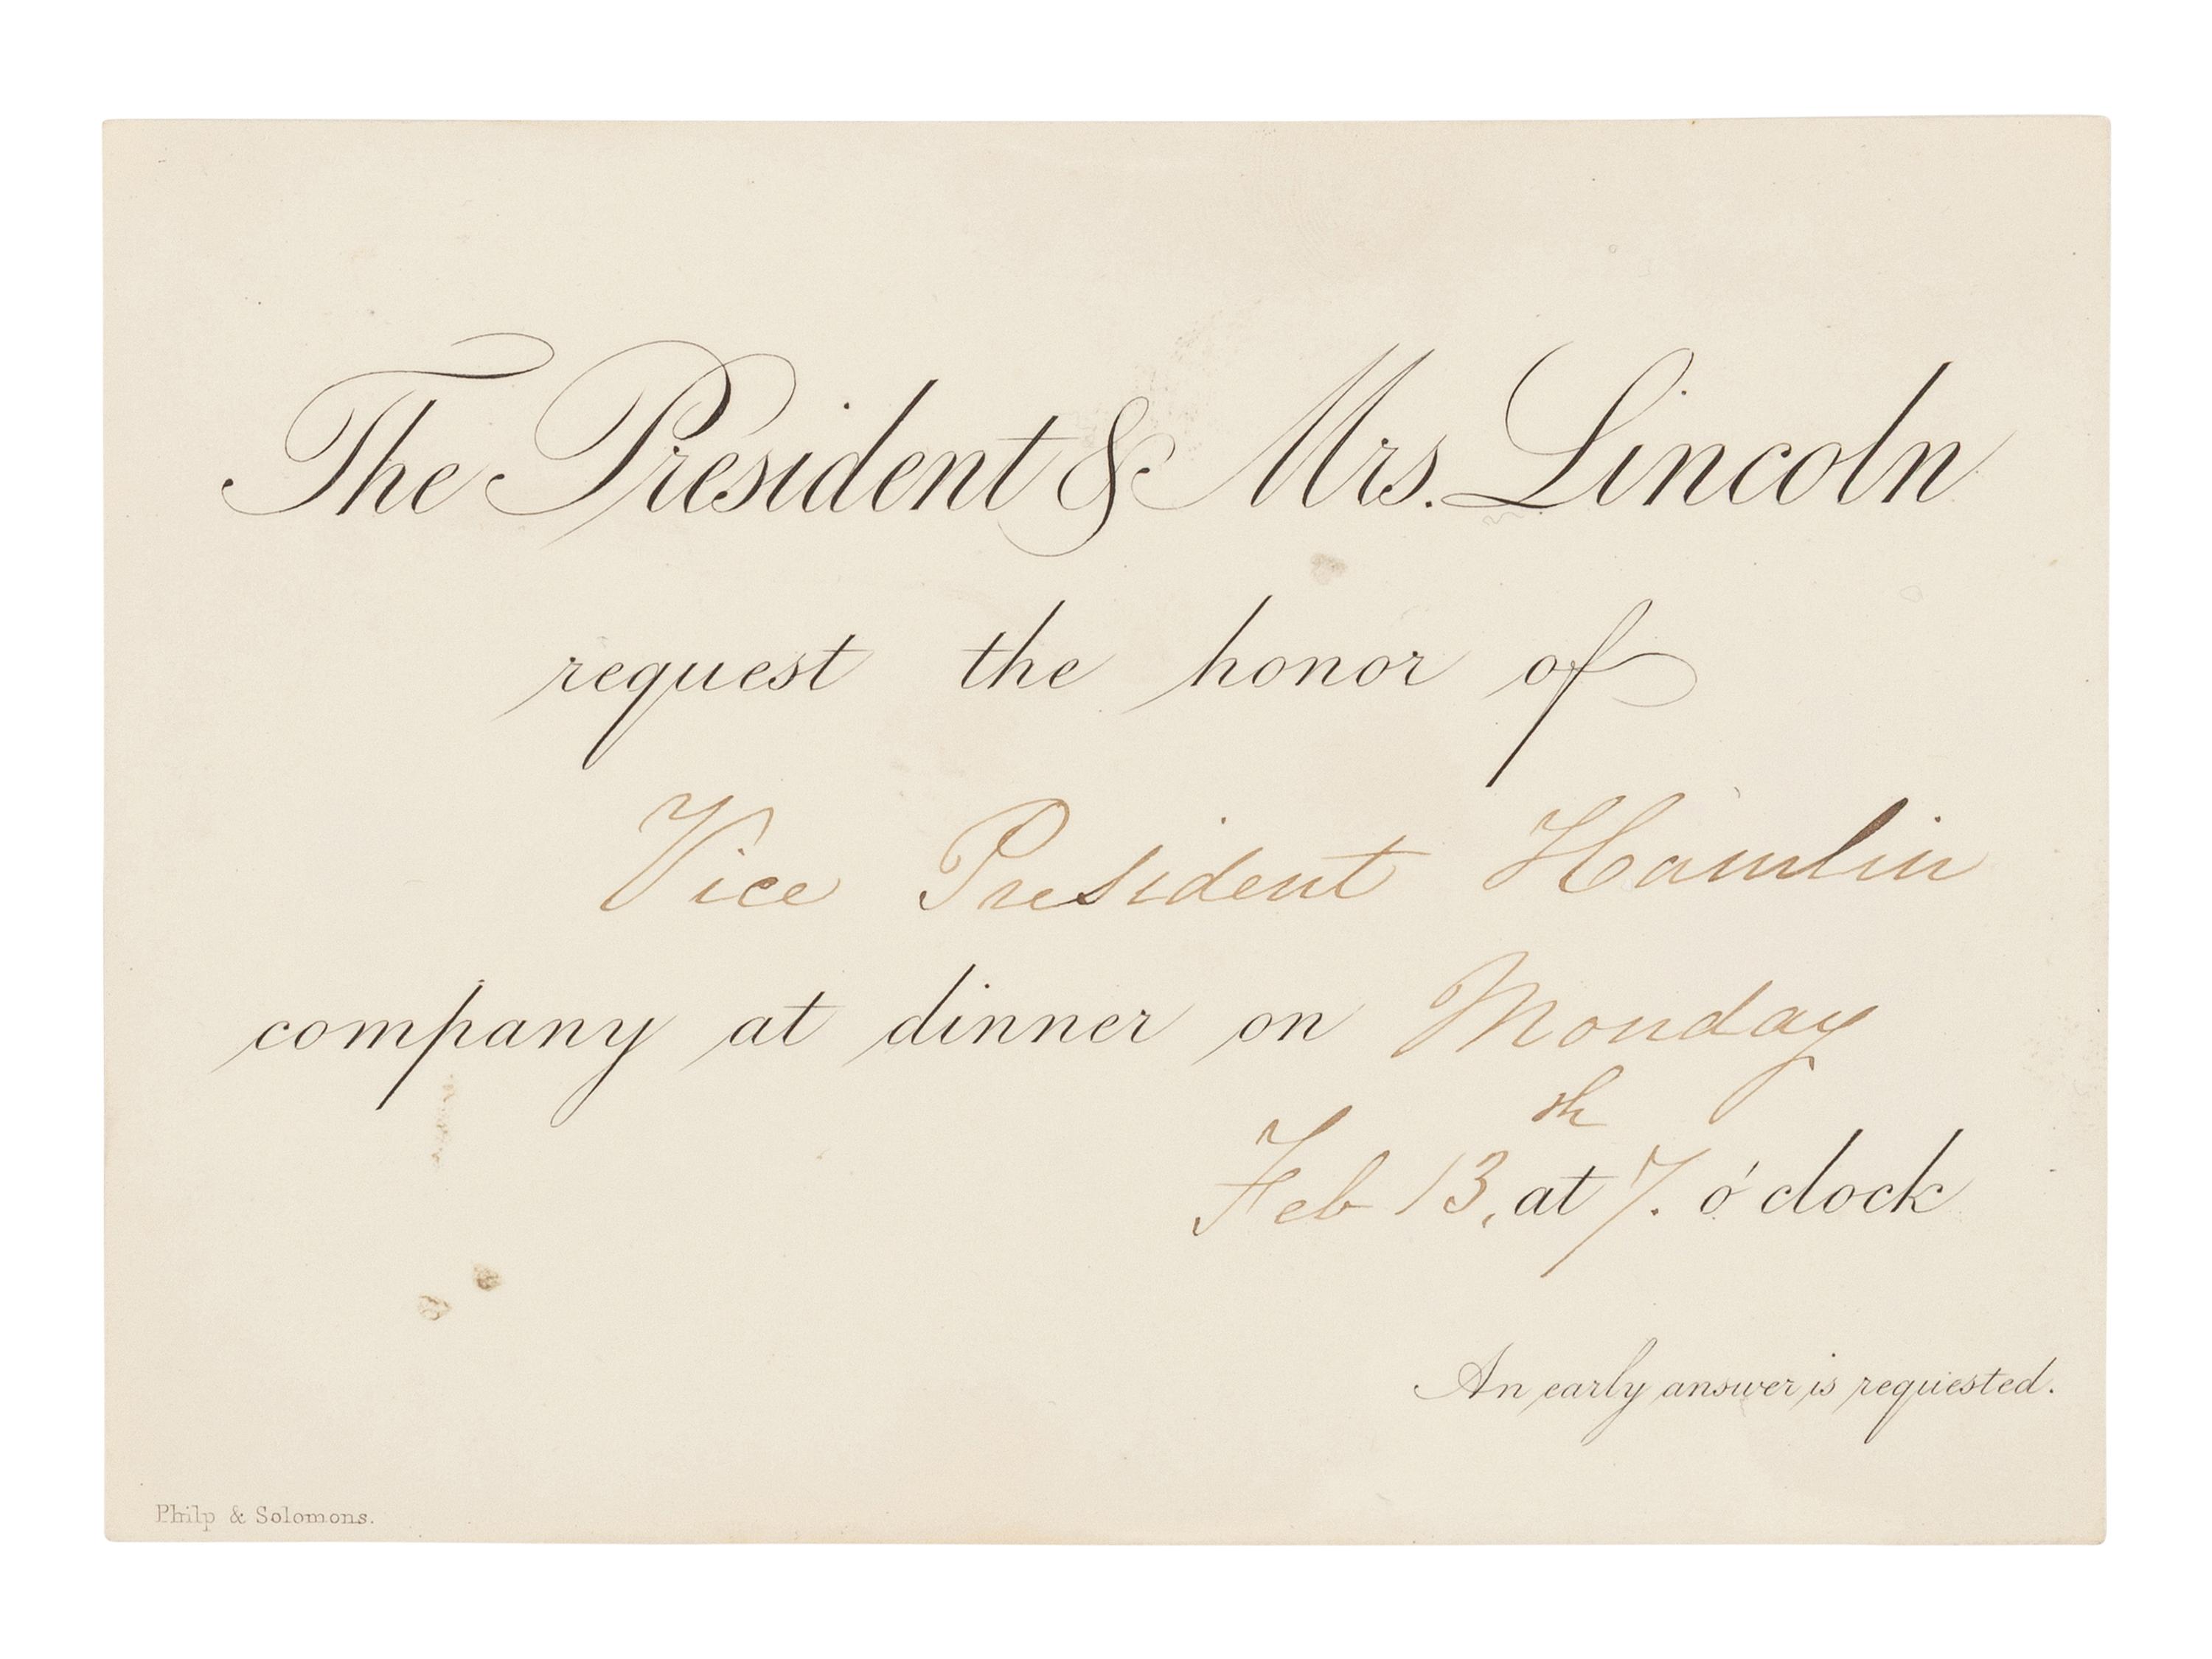 The President & Mrs. Lincoln
request the honor of
Vice President Hamlin
company at dinner on Monday
Feb 13th, at 7. o'clock
An early answer is requested.
Philp & Solomons.